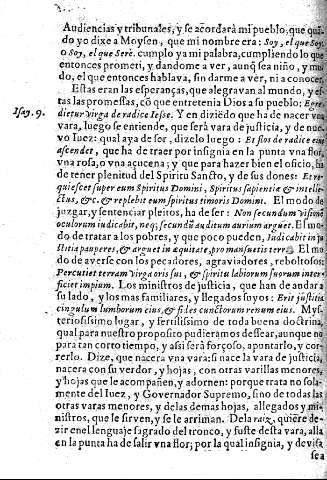 Audiencias y tribunales, y se acordarà mi pueblo, que quã-
do yo dixe a Moysen, que mi nombre era: Soy, el que Soy,
o Soy, el que Serè. cumplo ya mi palabra, cumpliendo lo que
entonces prometi, y dandome a ver, aunq̃ sea niño, y mu-
do, el que entonces hablava, sin darme a ver, ni a conocer.
Estas eran las esperanças, que alegravan al mundo, y es-
tas las promessas, cõ que entretenia Dios a su pueblo: Egre-
Isay. 9.
dietur virga de radice Iesse. Y en diziẽdo que ha de nacer vna
vara, luego se entiende, que serà vara de justicia, y de nue-
vo Iuez: qual aya de ser, dizelo luego: Et flos de radice eius
ascendet, que ha de traer por insignia en la punta vna flor,
vna rosa, o vna açucena; y que para hazer bien el oficio, ha
de tener plenitud del Spiritu Sancto, y de sus dones: Et re-
quiescet super eum Spiritus Domini, Spiritus sapientiæ & intelle-
ctus, &c. & replebit eum spiritus timoris Domini. El modo de
juzgar, y sentenciar pleitos, ha de ser: Non secundum visionẽ
oculorum iudicabit, neq; secundũ auditum aurium arguet. El mo-
do de tratar a los pobres, y que poco pueden, Iudicabit in ju-
stitia pauperes, & arguet in æquitate, pro mansuetis terræ. El mo-
do de averse con los pecadores, agraviadores, reboltosos:
Percutiet terram virga oris sus, & spiritu labiorum suorum inter-
ficiet impium. Los ministros de justicia, que han de andar a
su lado, y los mas familiares, y llegados suyos: Erit justitia
cingulum lumborum eius, & fides cunctorum renum eius. Mys-
teriosissimo lugar, y fertilissimo de toda buena doctrina,
qual para nuestro proposito pudieramos dessear, aunque no
para tan corto tiempo, y assi serà forçoso, apuntarlo, y cor-
rerlo. Dize, que nacera vna vara: si nace la vara de justicia,
nacera con su verdor, y hojas, con otras varillas menores,
y hojas que le acompañen, y adornen: porque trata no sola-
mente del Iuez, y Governador Supremo, sino de todas las
otras varas menores, y de las demas hojas, allegados y mi-
nistros, que le sirven, y se le arriman. De la raiz, quiere de-
zir en el lenguaje sagrado del tronco, y fuste desta vara, alla
en la punta ha de salir vna flor; por la qual insignia, y devisa
sea